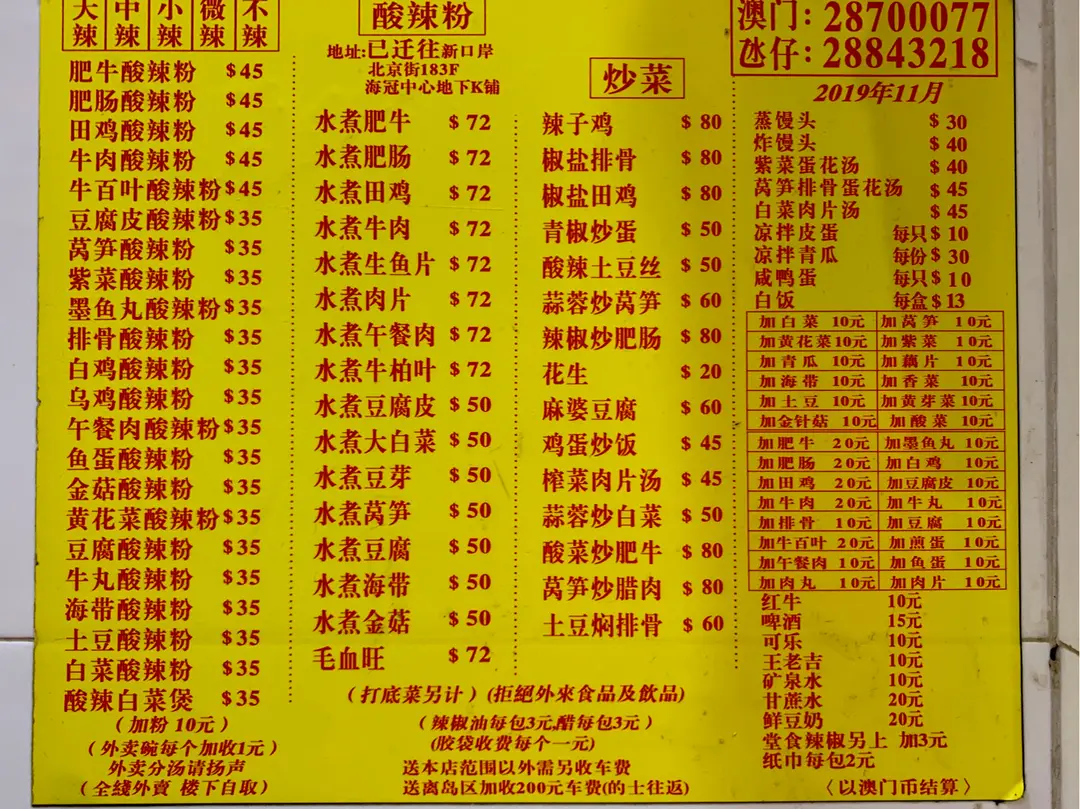 大辣 中辣 小辣 微辣 不辣
肥牛酸辣粉 $45
肥肠酸辣粉 $45
田鸡酸辣粉 $45
牛肉酸辣粉 $45
牛百叶酸辣粉 $45
豆腐皮酸辣粉 $35
莴笋酸辣粉 $35
紫菜酸辣粉 $35
墨鱼丸酸辣粉 $35
排骨酸辣粉 $35
白鸡酸辣粉 $35
乌鸡酸辣粉 $35
午餐肉酸辣粉 $35
鱼蛋酸辣粉 $35
金菇酸辣粉 $35
黄花菜酸辣粉 $35
豆腐酸辣粉 $35
牛丸酸辣粉 $35
海带酸辣粉 $35
土豆酸辣粉 $35
白菜酸辣粉 $35
酸辣白菜煲 $35
（加粉 10元）
（外卖碗每个加收1元）
外卖分汤请扬声
（全綫外賣 楼下自取）
酸辣粉
地址:已迁往新口岸
北京街183F
海冠中心地下K铺
水煮肥牛 $72
水煮肥肠 $72
水煮田鸡 $72
水煮牛肉 $72
水煮生鱼片 $72
水煮肉片 $72
水煮午餐肉 $72
水煮牛柏叶 $72
水煮豆腐皮 $50
水煮大白菜 $50
水煮豆芽 $50
水煮莴笋 $50
水煮豆腐 $50
水煮海带 $50
水煮金菇 $50
毛血旺 $72
炒菜
辣子鸡 $80
椒盐排骨 $80
椒盐田鸡 $80
青椒炒蛋 $50
酸辣土豆丝 $50
蒜蓉炒莴笋 $60
辣椒炒肥肠 $80
花生 $20
麻婆豆腐 $60
鸡蛋炒饭 $45
榨菜肉片汤 $45
蒜蓉炒白菜 $50
酸菜炒肥牛 $80
莴笋炒腊肉 $80
土豆焖排骨 $60
（打底菜另计）(拒絕外來食品及飲品)
（辣椒油每包3元,醋每包3元）
(胶袋收费每个一元)
送本店范围以外需另收车费
送离岛区加收200元车费(的士往返)
澳门: 28700077
氹仔: 28843218
2019年11月
蒸馒头 $30
炸馒头 $40
紫菜蛋花汤 $40
莴笋排骨蛋花汤 $45
白菜肉片汤 $45
凉拌皮蛋 每只$10
凉拌青瓜 每份$30
咸鸭蛋 每只$10
白饭 每盒$13
加白菜 10元 加莴笋 10元
加黄花菜10元 加紫菜 10元
加青瓜 10元 加藕片 10元
加海带 10元 加香菜 10元
加土豆 10元 加黄芽菜10元
加金针菇 10元 加酸菜 10元
加肥牛 20元 加墨鱼丸 10元
加肥肠 20元 加白鸡 10元
加田鸡 20元 加豆腐皮 10元
加牛肉 20元 加牛丸 10元
加排骨 10元 加豆腐 10元
加牛百叶 20元 加煎蛋 10元
加午餐肉 10元 加鱼蛋 10元
加肉丸 10元 加肉片 10元
红牛 10元
啤酒 15元
可乐 10元
王老吉 10元
矿泉水 10元
甘蔗水 20元
鲜豆奶 20元
堂食辣椒另上 加3元
纸巾每包2元
〈以澳门币结算〉